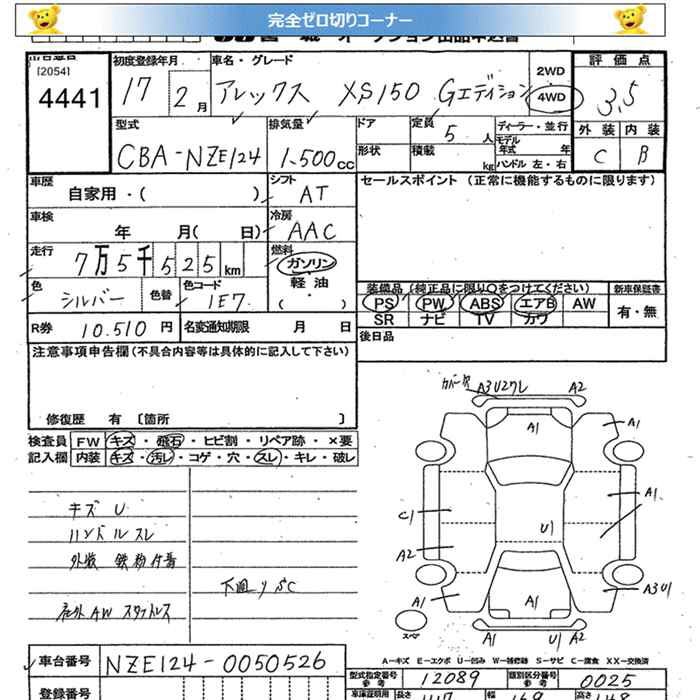 完全ゼロ切りコーナー
オークション出品申込書
出品番号
[2054]
4441
初度登録年月
17 2月
車名・グレード
アレックス XS150 Gエディション
2WD
4WD
評価点
3.5
外装 内装
C B
型式
CBA-NZE124
排気量
1.500cc
ドア
定員 5人
形状
積載 kg
ディーラー・並行
モデル年式 年
ハンドル 左・右
車歴
自家用・( )
シフト
AT
セールスポイント (正常に機能するものに限ります)
車検
年 月( 日)
冷房
AAC
走行
7万5千525km
燃料
ガソリン・軽油・( )
色
シルバー
色替
色コード
1E7
装備品(純正品に限り○をつけてください)
PS PW ABS エアB AW
SR ナビ TV カワ
新車保証書
有・無
R券 10.510円
名変通知期限 月 日
後日品
注意事項申告欄(不具合内容等は具体的に記入して下さい)
修復歴 有 〔箇所 〕
検査員記入欄
FW キズ・飛石・ヒビ割・リペア跡・×要
内装 キズ・汚レ・コゲ・穴・スレ・キレ・破レ
キズ U
ハンドルスレ
外装 鉄粉付着
下廻りSC
社外AW スタットレス
カバー穴 A3U2ワレ A2
A1
A1
A1
C1
U1
A2
A1
A1
A3U1
スペア
U1 A2
A―キズ E―エクボ U―凹み W―補修跡 S―サビ C―腐食 XX―交換済
車台番号
NZE124-0050526
型式指定番号 参考
12089
類別区分番号 参考
0025
登録番号
車庫証明用
長さ
幅
169
高さ
148